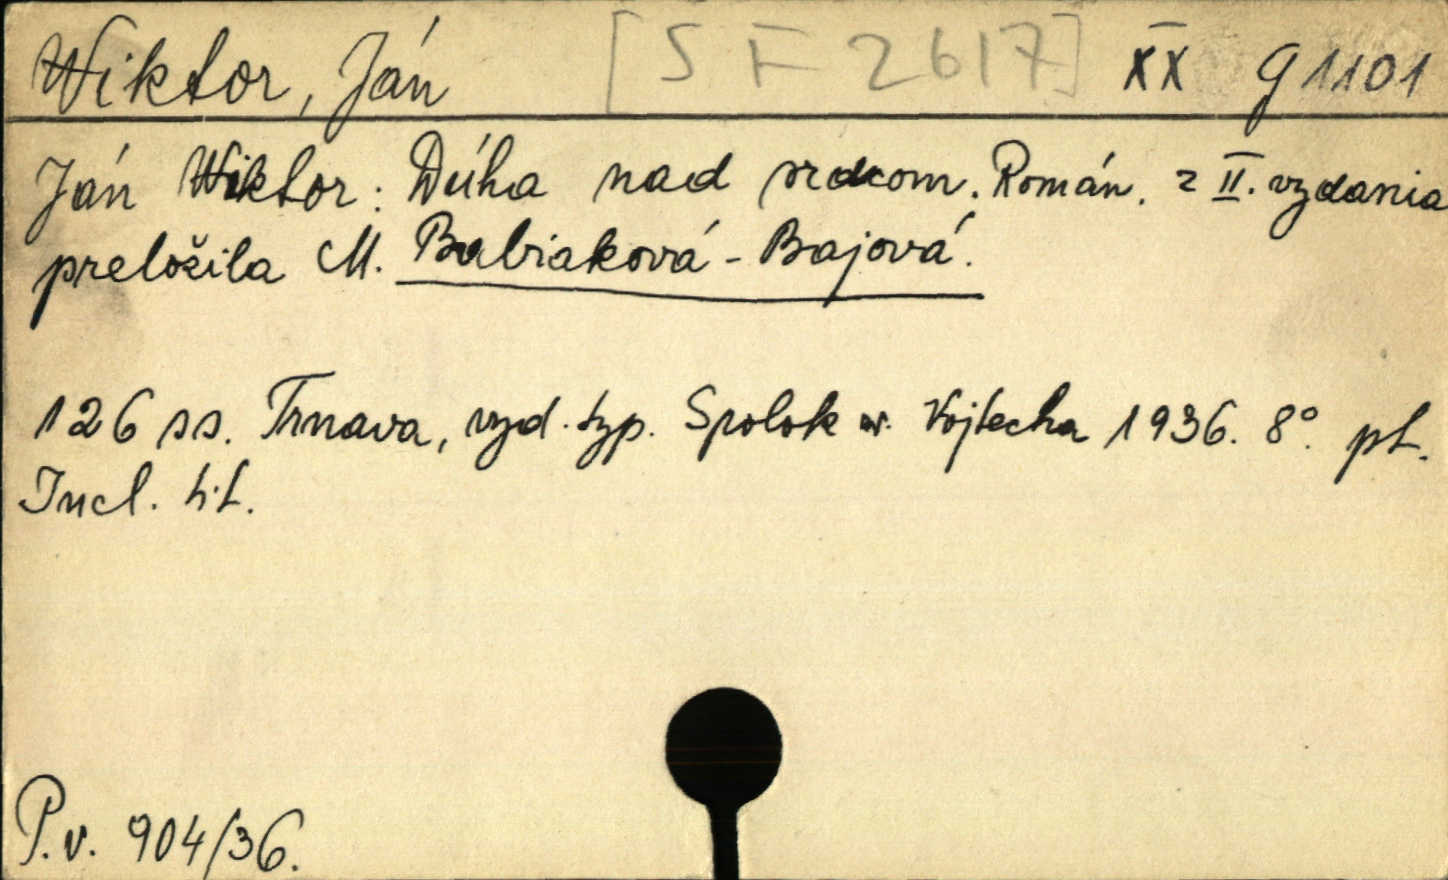 Wiktor, Ján [S F 2617] XX g 1101
Ján Wiktor: Dúha nad srdcom. Román. z II. vydania
preložila M. Babiaková-Bajová.
126 ss. Trnava, vyd. typ. Spolok sv. Vojtecha 1936. 8°. pt.
Incl. tit.
P.v. 904/36.